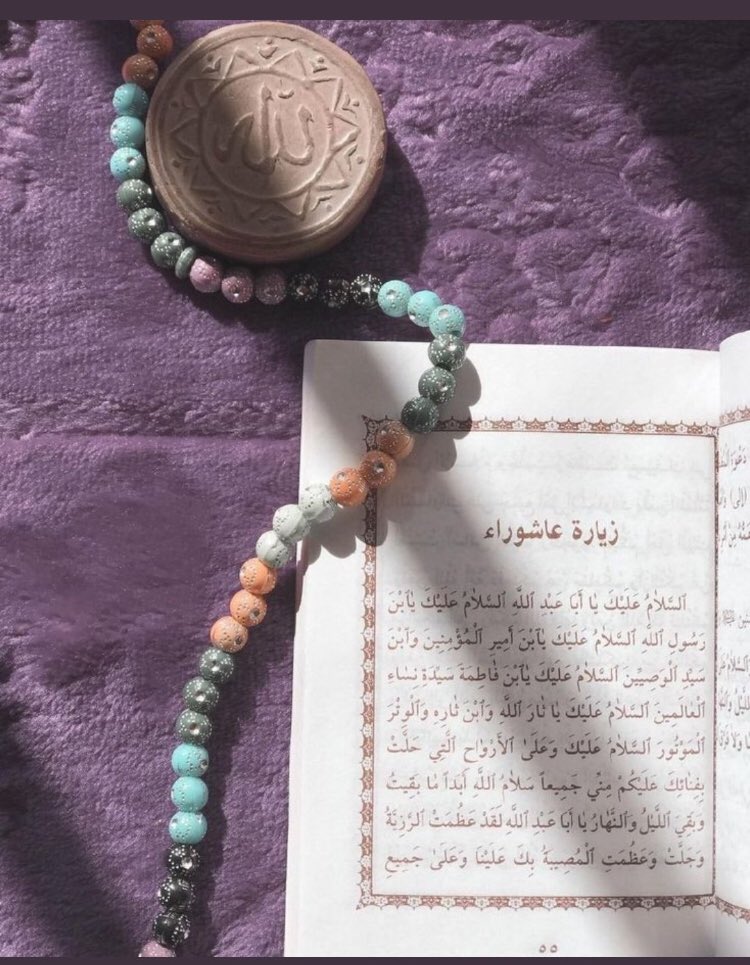 الله
زيارة عاشوراء
اَلسَّلاٰمُ عَلَيْكَ يٰا أَبٰا عَبْدِ اللهِ اَلسَّلاٰمُ عَلَيْكَ يَابْنَ
رَسُولِ اللهِ اَلسَّلاٰمُ عَلَيْكَ يَابْنَ أَمِيرِ الْمُؤْمِنِينَ وَابْنَ
سَيِّدِ الْوَصِيِّينَ اَلسَّلاٰمُ عَلَيْكَ يَابْنَ فٰاطِمَةَ سَيِّدَةِ نِسٰاءِ
الْعٰالَمِينَ اَلسَّلاٰمُ عَلَيْكَ يٰا ثٰارَ اللهِ وَابْنَ ثٰارِهِ وَالْوِتْرَ
الْمَوْتُورَ اَلسَّلاٰمُ عَلَيْكَ وَعَلَى الْأَرْوٰاحِ الَّتِي حَلَّتْ
بِفِنٰائِكَ عَلَيْكُمْ مِنِّي جَمِيعاً سَلاٰمُ اللهِ أَبَداً مٰا بَقِيتُ
وَبَقِيَ اللَّيْلُ وَالنَّهٰارُ يٰا أَبٰا عَبْدِ اللهِ لَقَدْ عَظُمَتْ الرَّزِيَّةُ
وَجَلَّتْ وَعَظُمَتِ الْمُصِيبَةُ بِكَ عَلَيْنٰا وَعَلىٰ جَمِيعِ
٥٥